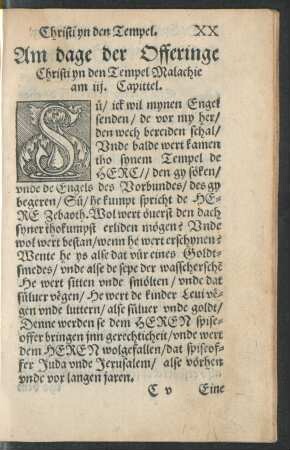 Christi yn den Tempel. XX
Am dage der Offeringe
Christi yn den Tempel Malachie
am iij. Capittel.
Sü/ ick wil mynen Engel
senden/ de vor my her/
den wech bereiden schal/
Vnde balde wert kamen
tho synem Tempel de
HERE// den gy söken/
vnde de Engels des Vorbundes/ des gy
begeren/ Sü/ he kumpt spricht de HE-
RE Zebaoth. Wol wert öuerst den dach
syner thokumpst erliden mögen? Vnde
wol wert bestan/ wenn he wert erschynen?
Wente he ys alse dat vür eines Goldt-
smedes/ vnde alse de sepe der wasscherschē
He wert sitten vnde smölten/ vnde dat
sülver vēgen/ He wert de kinder Leui vē-
gen vnde luttern/ alse sülver vnde goldt/
Denne werden se dem HEREN spise-
offer bringen inn gerechticheit/ vnde wert
dem HEREN wolgefallen/ dat spiseof-
fer Juda vnde Jerusalem/ alse vörhen
vnde vor langen jaren.
C v Eine